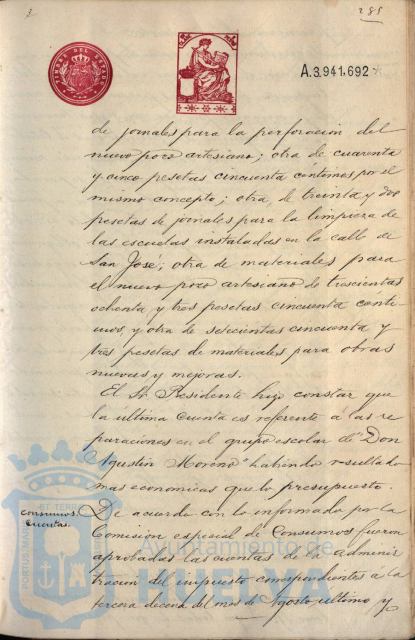 285
TIMBRE DEL ESTADO
A.3.941.692
de jornales para la perforacion del
nuevo pozo artesiano; otra de cuarenta
y cinco pesetas cincuenta céntimos por el
mismo concepto; otra, de treinta y dos
pesetas de jornales para la limpieza de
las escuelas instaladas en la calle de
San José; otra de materiales para
el nuevo pozo artesiano de trescientas
ochenta y tres pesetas cincuenta centi-
mos, y otra de setecientas cincuenta y
tres pesetas de materiales para obras
nuevas y mejoras.
El Sr. Presidente hizo constar que
la ultima cuenta es referente á las re
paraciones en el grupo escolar de "Don
Agustin Moreno" habiendo resultado
mas economicas que lo presupuesto.
consumos.
Cuentas.
De acuerdo con lo informado por la
Comision especial de Consumos fueron
aprobadas las cuentas de la adminis
tracion del impuesto correspondientes á la
tercera decena del mes de Agosto ultimo y
Ayuntamiento de
HUELVA